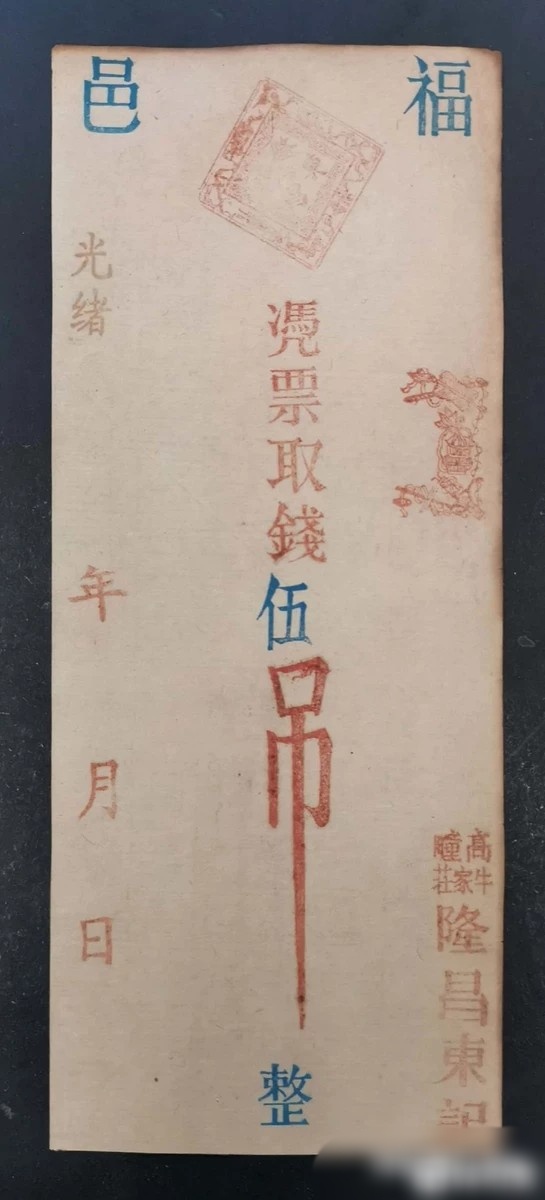 福邑
高疃
牛家莊
隆昌東記
憑票取錢伍吊整
光緒 年 月 日